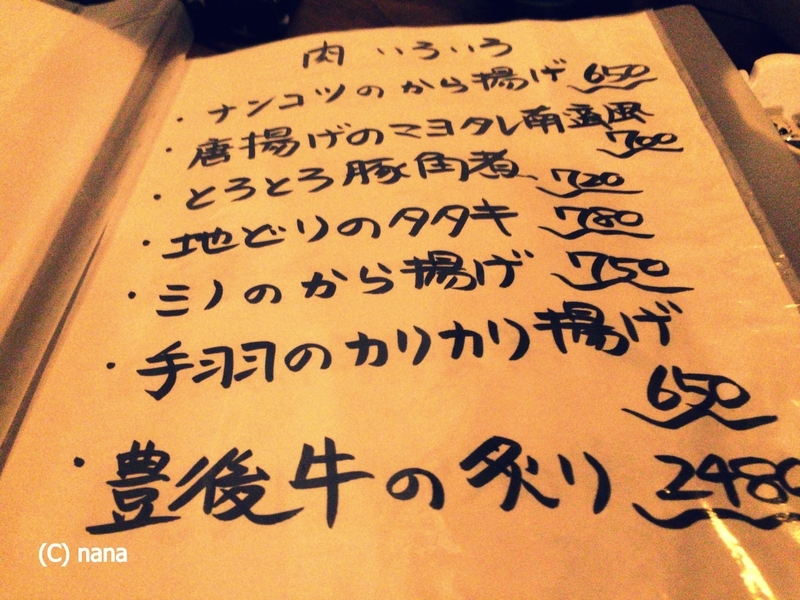 肉 いろいろ
・ナンコツのから揚げ 650
・唐揚げのマヨタレ南蛮風
700
・とろとろ豚角煮 720
・地どりのタタキ 780
・ミノのから揚げ 750
・手羽のカリカリ揚げ
650
・豊後牛の炙り 2480
(C) nana